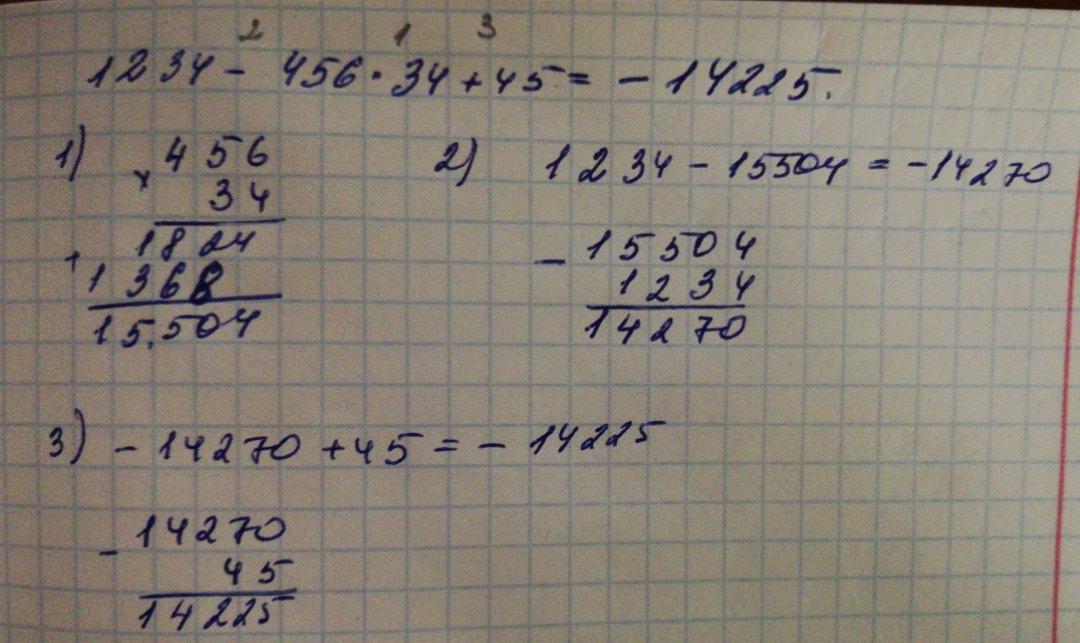 2 1 3
1234 - 456 · 34 + 45 = - 14225.
1) × 456
34
1824
+ 1368
15.504
2) 1234 - 15504 = -14270
- 15504
1234
14270
3) - 14270 + 45 = - 14225
- 14270
45
14225